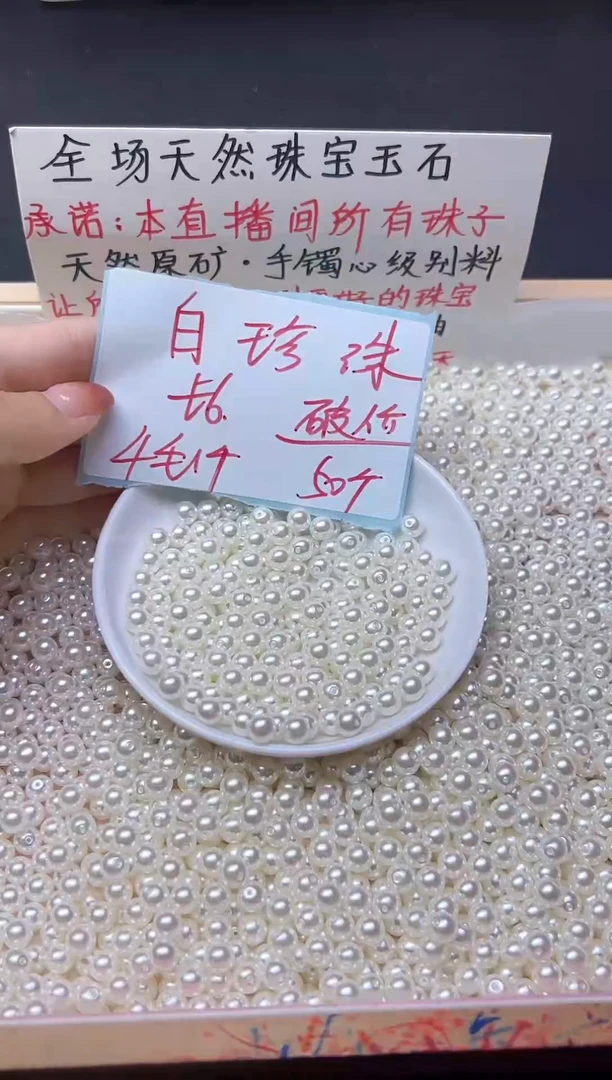 全场天然珠宝玉石
承诺:本直播间所有珠子
天然原矿·手镯心级别料
让
的珠宝
白珍珠
破价
4毛1个
50个